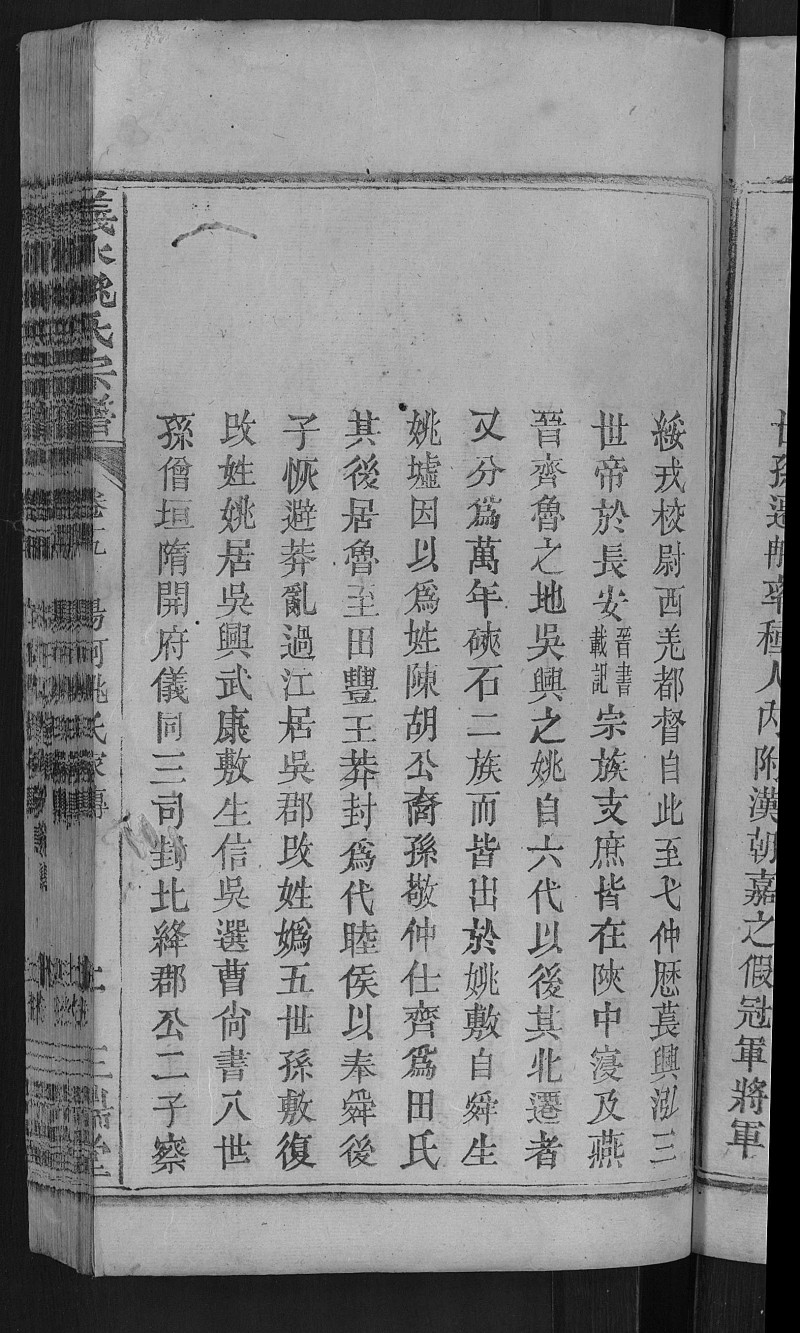 世孫遷那率種人內附漢朝嘉之假冠軍將軍
綏戎校尉西羌都督自此至弋仲歷萇興泓三
世帝於長安晉書載記宗族支庶皆在陝中寖及燕
晉齊魯之地吳興之姚自六代以後其北遷者
又分爲萬年硤石二族而皆出於姚敷自舜生
姚墟因以爲姓陳胡公裔孫敬仲仕齊爲田氏
其後居魯至田豐王莽封爲代睦侯以奉舜後
子恢避莽亂過江居吳郡改姓嬀五世孫敷復
改姓姚居吳興武康敷生信吳選曹尚書八世
孫僧垣隋開府儀同三司封北絳郡公二子察
姚氏宗譜
卷五
姚氏家傳